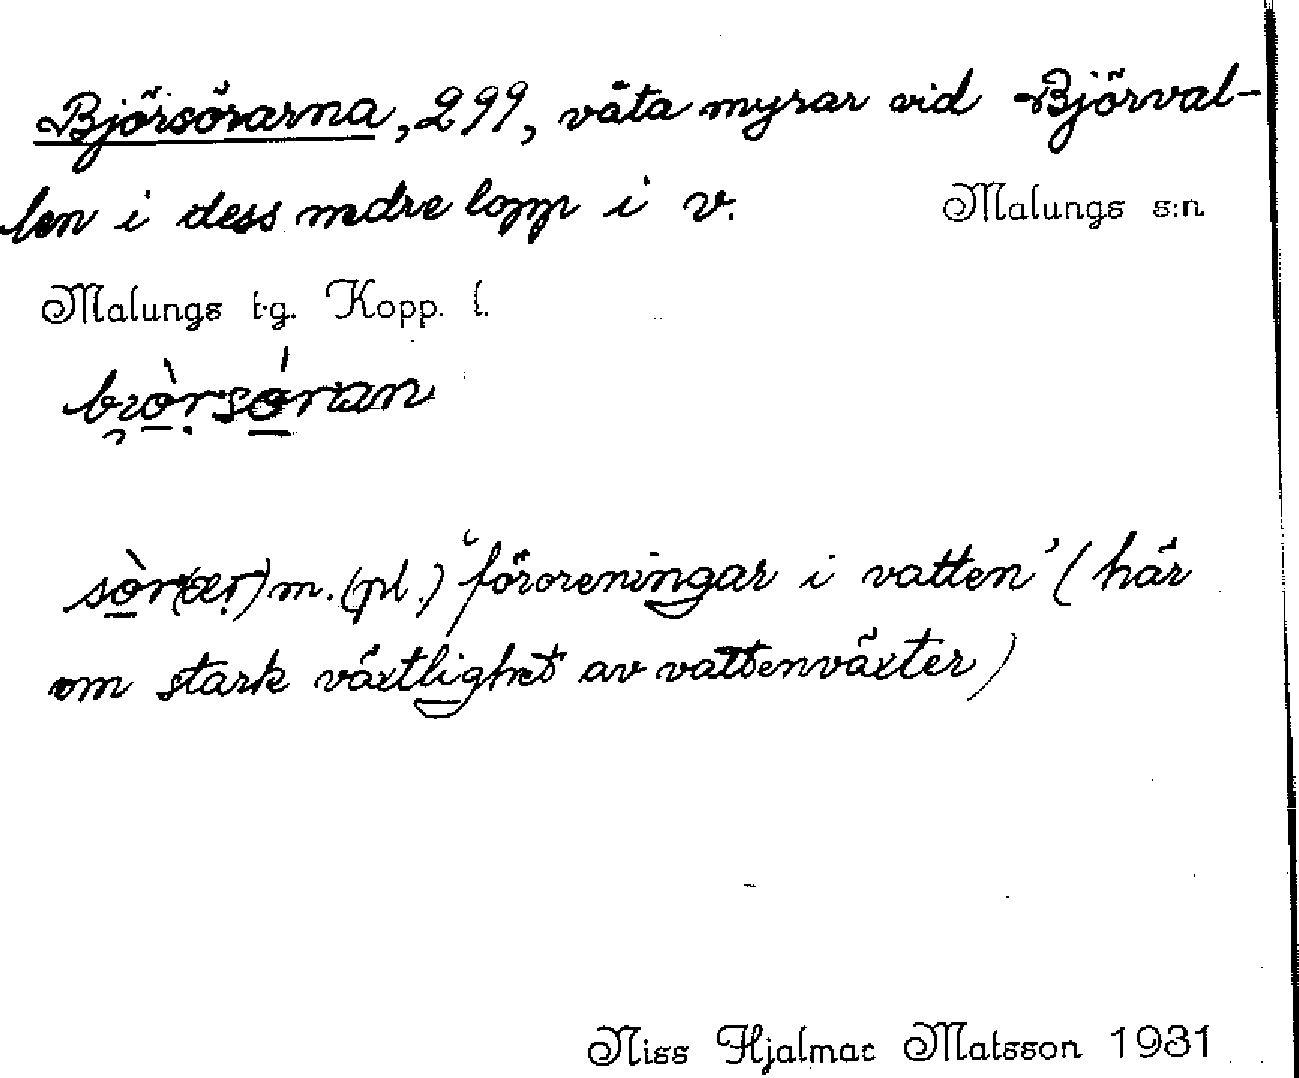 Björsörarna, 299, våta myrar vid Björval-
len i dess nedre lopp i v. Malungs s:n
Malungs t.g. Kopp. l.
sòr(ær) m. (pl.) ‘föroreningar i vatten’ (här
om stark växtlighet av vattenväxter)
Niss Hjalmar Matsson 1931